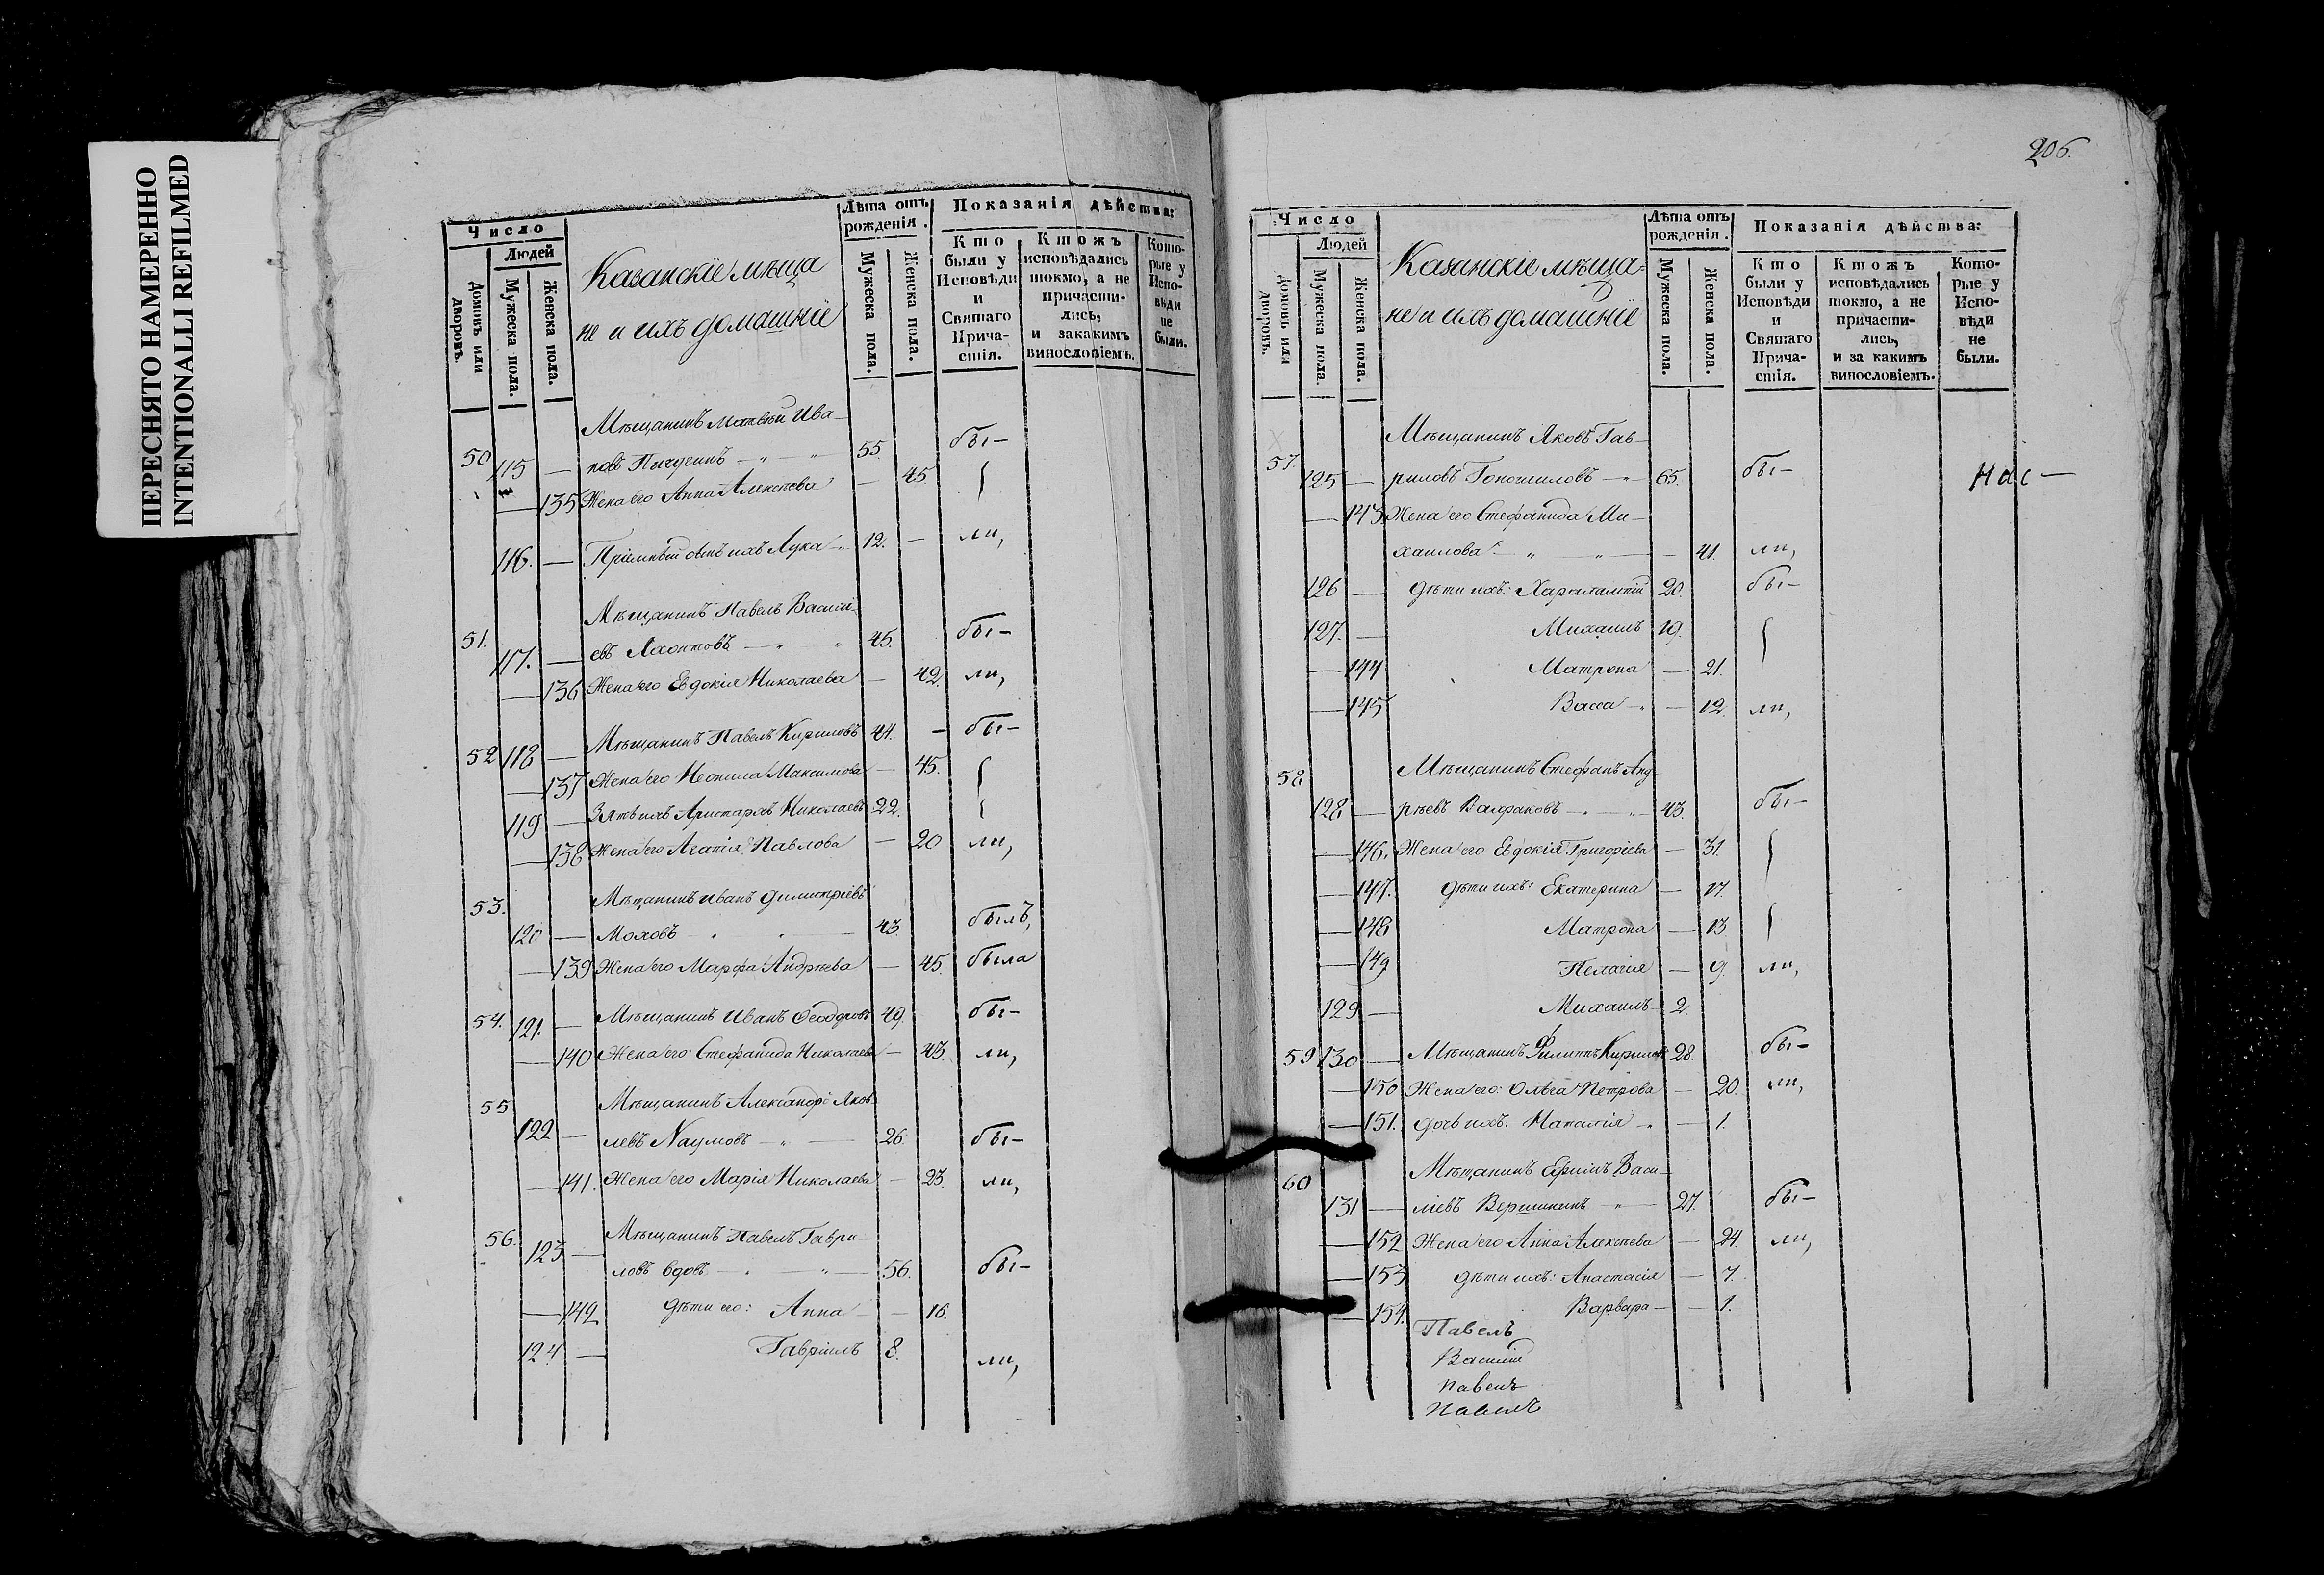 ПЕРЕСНЯТО НАМЕРЕННО
INTENTIONALLI REFILMED
Число
Людей
Домовъ или дворовъ.
Мужеска пола.
Женска пола.
Казанскіе мѣща
не и ихъ домашніе
Лѣта отъ рожденія.
Мужеска пола.
Женска пола.
Показанія дѣйства:
Кто были у Исповѣди и Святаго Причастія.
Ктожъ исповѣдались токмо, а не причастились, и закакимъ винословіемъ.
Которые у Исповѣди не были.
Мѣщанинъ Матвѣй Ива–
50 115 — новъ Пичугинъ — 55. бы–
— 135 Жена его Анна Алексѣева — 45
116. — Пріемный сынъ ихъ Лука 12. — ли,
Мѣщанинъ Павелъ Василі–
51. 117. — евъ Лаонтовъ — 45. бы–
— 136 Жена его Евдокія Николаева — 42. ли,
52 118 — Мѣщанинъ Павелъ Кириловъ 44. – бы–
— 137 Жена его Неонила Максимова — 45.
119 — Зять ихъ Аристархъ Николаевъ 22.
— 138 Жена его Агапія Павлова — 20 ли,
53. Мѣщанинъ Иванъ Димитріевъ
120 — Моховъ — 43. былъ,
— 139 Жена его Марфа Андреева — 45. была
54. 121. — Мѣщанинъ Иванъ Феодоровъ 49. бы–
— 140 Жена его Стефанида Николаева — 43. ли,
55 Мѣщанинъ Александръ Яков–
122 — левъ Наумовъ — 26. бы–
— 141. Жена его Марія Николаева — 23. ли,
56. 123 — Мѣщанинъ Павелъ Гаври–
ловъ вдовъ — 56. бы–
— 142 Дѣти его: Анна — 16.
124 — Гавріилъ 8. ли,
206.
Число
Людей
Домовъ или дворовъ.
Мужеска пола.
Женска пола.
Казанскіе мѣща=
не и ихъ домашніе
Лѣта отъ рожденія.
Мужеска пола.
Женска пола.
Показанія дѣйства:
Кто были у Исповѣди и Святаго Причастія.
Ктожъ исповѣдались токмо, а не причастились, и за какимъ винословіемъ.
Которые у Исповѣди не были.
Мѣщанинъ Яковъ Гав–
57. 125 — риловъ 65. бы– Нас–
— 143 Жена его Стефанида Ми–
хаилова — 41. ли,
126 — Дѣти ихъ: Харалампій 20. бы–
127. — Михаилъ 19.
— 144 Матрона — 21.
— 145 Васса — 12. ли,
58 Мѣщанинъ Стефанъ Анд–
128 — рѣевъ Вахраковъ — 43. бы–
— 146. Жена его Евдокія Григоріева — 31.
— 147. Дѣти ихъ: Екатерина — 17.
— 148 Матрона — 13.
— 149 Пелагія — 9. ли,
129 — Михаилъ 2.
59 130 — Мѣщанинъ Филиппъ Кириловъ 28. бы–
— 150 Жена его: Ольга Петрова — 20. ли,
— 151. Дочь ихъ. Наталія — 1.
60 Мѣщанинъ Ефимъ Васи–
131 — ліевъ Вершининъ — 27. бы–
— 152 Жена его Анна Алексѣева — 24. ли,
— 153 Дѣти ихъ: Анастасія — 7.
— 154. Варвара — 1.
Павелъ
Василій
Павелъ
Павелъ